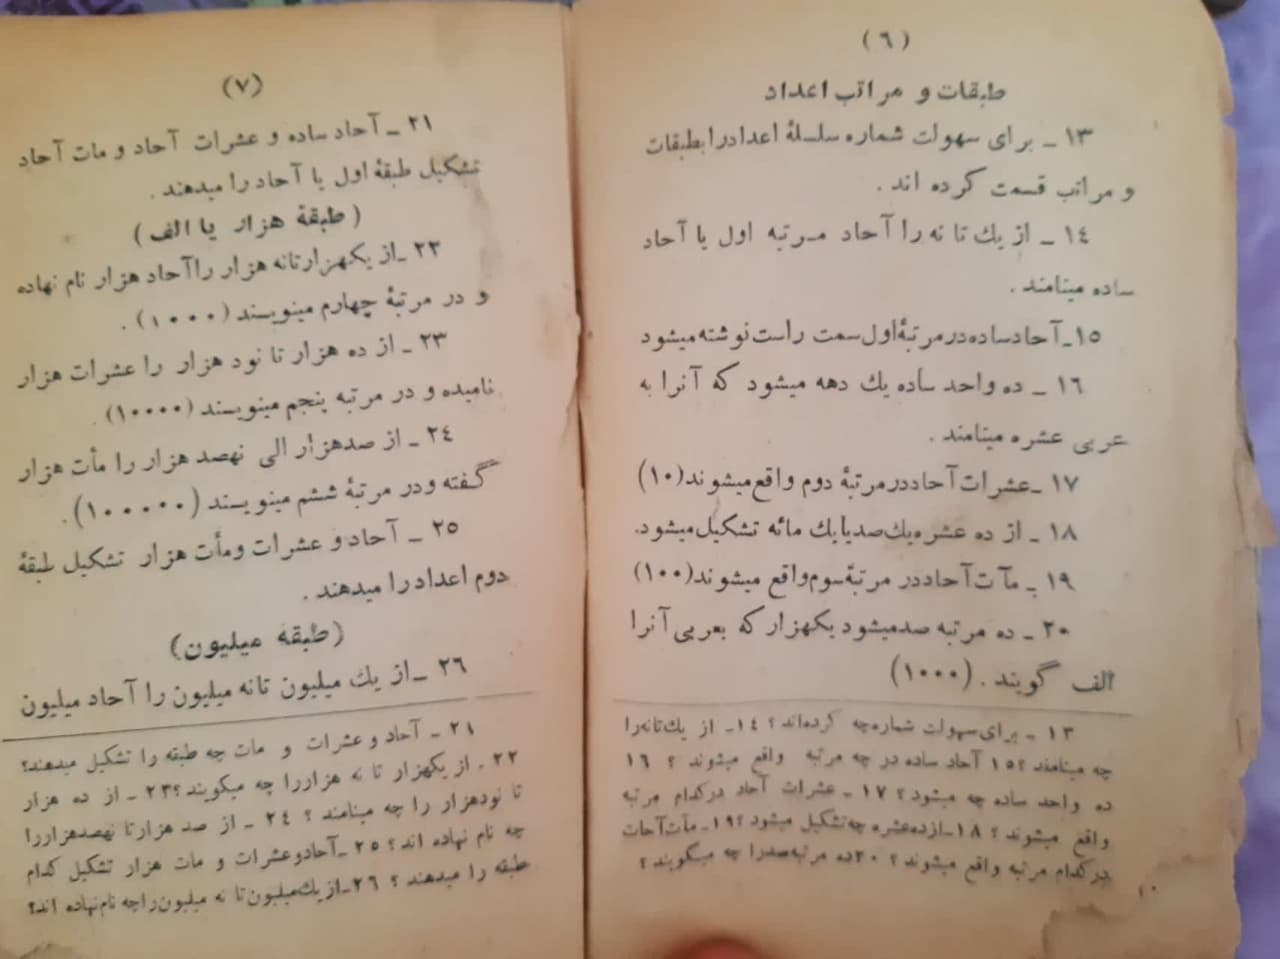 (٦)
طبقات و مراتب اعداد
١٣ ـ برای سهولت شماره سلسلهٔ اعداد را بطبقات
و مراتب قسمت کرده اند .
١٤ ـ از یك تا نه را آحاد مرتبه اول یا آحاد
ساده مینامند .
١٥ـ آحاد ساده در مرتبهٔ اول سمت راست نوشته میشود
١٦ ـ ده واحد ساده یك دهه میشود که آنرا به
عربی عشره مینامند .
١٧ ـ عشرات آحاد در مرتبهٔ دوم واقع میشوند (١٠)
١٨ ـ از ده عشره یك صد یا یك مائه تشکیل میشود.
١٩ ـ مآت آحاد در مرتبهٔ سوم واقع میشوند (١٠٠)
٢٠ ـ ده مرتبه صد میشود یکهزار که بعربی آنرا
الف گویند . (١٠٠٠)
١٣ ـ برای سهولت شماره چه کرده‌اند؟ ١٤ـ از یك تا نه را
چه مینامند؟ ١٥ آحاد ساده در چه مرتبه واقع میشوند ؟ ١٦
ده واحد ساده چه میشود؟ ١٧ ـ عشرات آحاد در کدام مرتبه
واقع میشوند ؟ ١٨ـ از ده عشره چه تشکیل میشود؟ ١٩ـ مآت آحات
در کدام مرتبه واقع میشوند ؟ ٢٠ ده مرتبه صد را چه میگویند؟
(٧)
٢١ ـ آحاد ساده و عشرات آحاد و مات آحاد
تشکیل طبقهٔ اول یا آحاد را میدهند .
(طبقهٔ هزار یا الف)
٢٢ ـ از یکهزار تا نه هزار را آحاد هزار نام نهاده
و در مرتبهٔ چهارم مینویسند (١٠٠٠) .
٢٣ ـ از ده هزار تا نود هزار را عشرات هزار
نامیده و در مرتبه پنجم مینویسند (١٠٠٠٠) .
٢٤ ـ از صد هزار الی نهصد هزار را مأت هزار
گفته و در مرتبهٔ ششم مینویسند (١٠٠٠٠٠) .
٢٥ ـ آحاد و عشرات و مأت هزار تشکیل طبقهٔ
دوم اعداد را میدهند .
(طبقه میلیون)
٢٦ ـ از یك میلیون تا نه میلیون را آحاد میلیون
٢١ ـ آحاد و عشرات و مات چه طبقه را تشکیل میدهند؟
٢٢ . از یکهزار تا نه هزار را چه میگویند؟ ٢٣ ـ از ده هزار
تا نود هزار را چه مینامند ؟ ٢٤ ـ از صد هزار تا نهصد هزار را
چه نام نهاده اند ؟ ٢٥ ـ آحاد و عشرات و مات هزار تشکیل کدام
طبقه را میدهند ؟ ٢٦ ـ از یك میلیون تا نه میلیون را چه نام نهاده اند؟